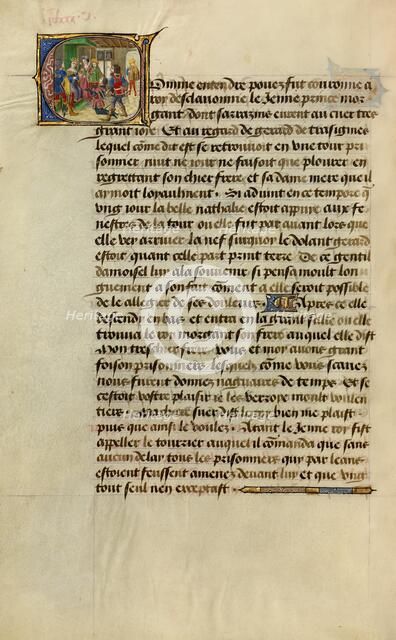 Comme entendre pouez fut couronne a
roy desclauonnie le Jenne prince mor
gant dont sarrazins eurent au cuer tres
grant ioie Et au regard de gerard de trasignies
lequel come dit est se retrouuoit en vne tour pri
sonnier nuit ne iour ne faisoit que plourer en
regrettant son chier frere et sa dame mere que il
aymoit loyaulment Si aduint en ce tempore q
vng iour la belle nathalie estoit appuye aux fe
nestres de la tour ou elle fut par auant lors que
elle vey arriuer la nef surquoy le dolant gerard
estoit quant celle part print terre De ce gentil
damoisel luy a la souuenir si pensa moult lon
guement a son fait coment a elle seroit possible
de le allegier de ses douleurs Apres ce elle
descendy en bas et entra en la grant salle ou elle
trouua le roy morgant son frere auquel elle dist
Mon treschier frere vous et moy auons grant
foison prisonniers lesquelz come vous scauez
nous furent donnez naguaires de temps Et se
cestoit vostre plaisir ie les verroye moult voulen
tiers Ma chiere suer dist le roy bien me plaist
puis que ainsi le voulez Atant le Jenne roy fist
appeller le tourrier auquel il comanda que sans
aucun delay tous les prisonniers quy par leans
estoient feussent amenez deuant luy et que vng
tout seul nen exceptast